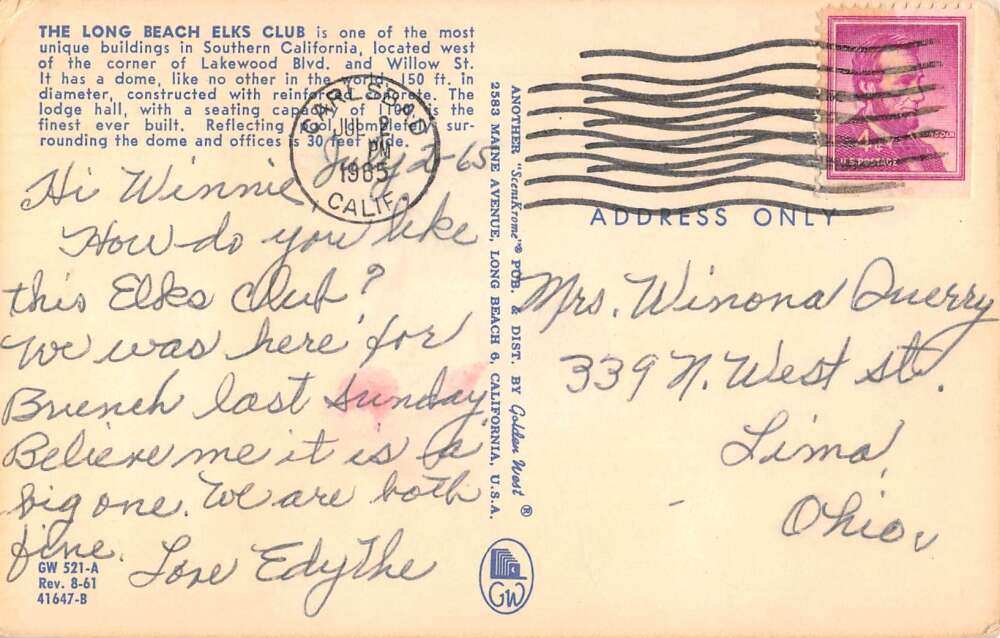 THE LONG BEACH ELKS CLUB is one of the most
unique buildings in Southern California, located west
of the corner of Lakewood Blvd. and Willow St.
It has a dome, like no other in the world, 150 ft. in
diameter, constructed with reinforced concrete. The
lodge hall, with a seating capacity of is the
finest ever built. Reflecting pool completely sur-
rounding the dome and offices is 30 feet wide.
CARLSBAD
JUL 2
PM
1965
CALIF.
July 2-65
Hi Winnie,
How do you like
this Elks Club?
We was here for
Bruench last Sunday.
Believe me it is a
big one. We are both
fine.
Love Edythe
GW 521-A
Rev. 8-61
41647-B
ANOTHER "ScenKrome"® PUB. & DIST. BY Golden West ®
2583 MAINE AVENUE, LONG BEACH 6, CALIFORNIA, U.S.A.
GW
4¢
LINCOLN
U.S. POSTAGE
ADDRESS ONLY
Mrs. Winona Querry
339 N. West St.
Lima,
Ohio,